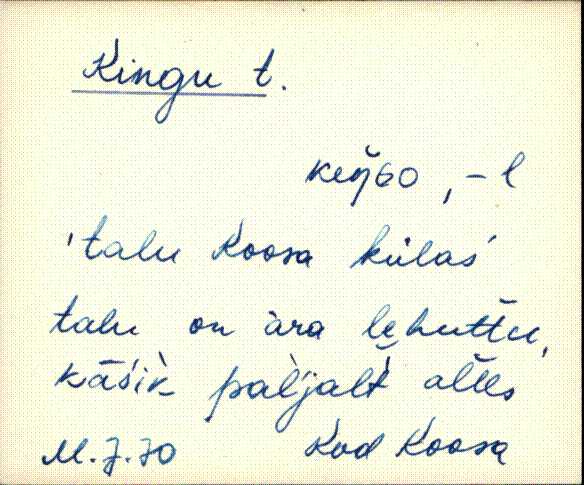 Kingu t.
keŋ̆GO, -l
'talu Koosa külas'
talu on ära lehuttu,
kāśik paljalt alles
M.J.70 Kod Koosa